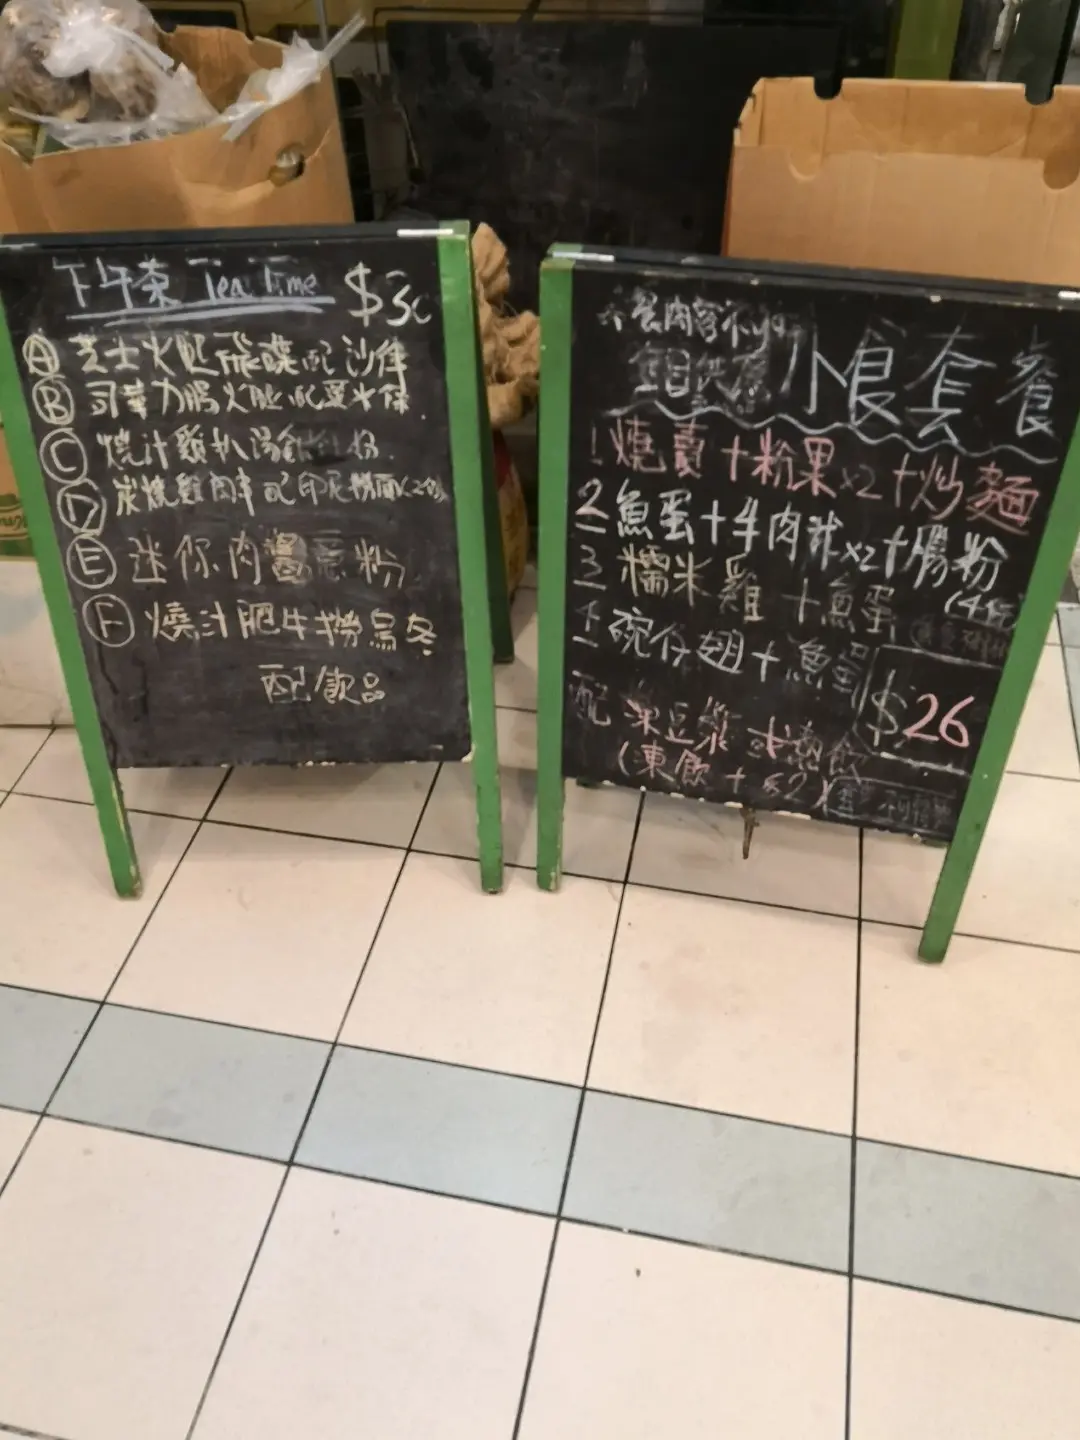 下午茶 Tea Time $30
A 芝士火腿飛碟配沙律
B 司華力腸火腿配粟米條
C 燒汁雞扒湯
D 炭燒雞肉串配印尼撈麵
E 迷你肉醬意粉
F 燒汁肥牛撈烏冬
配飲品
每日供應
小食套餐
1 燒賣+粉果x2+炒麵
2 魚蛋+牛肉球x2+腸粉
(4條)
3 糯米雞+魚蛋
4 碗仔翅+魚蛋
$26
配 凍豆漿 或熱飲
(凍飲+$2)